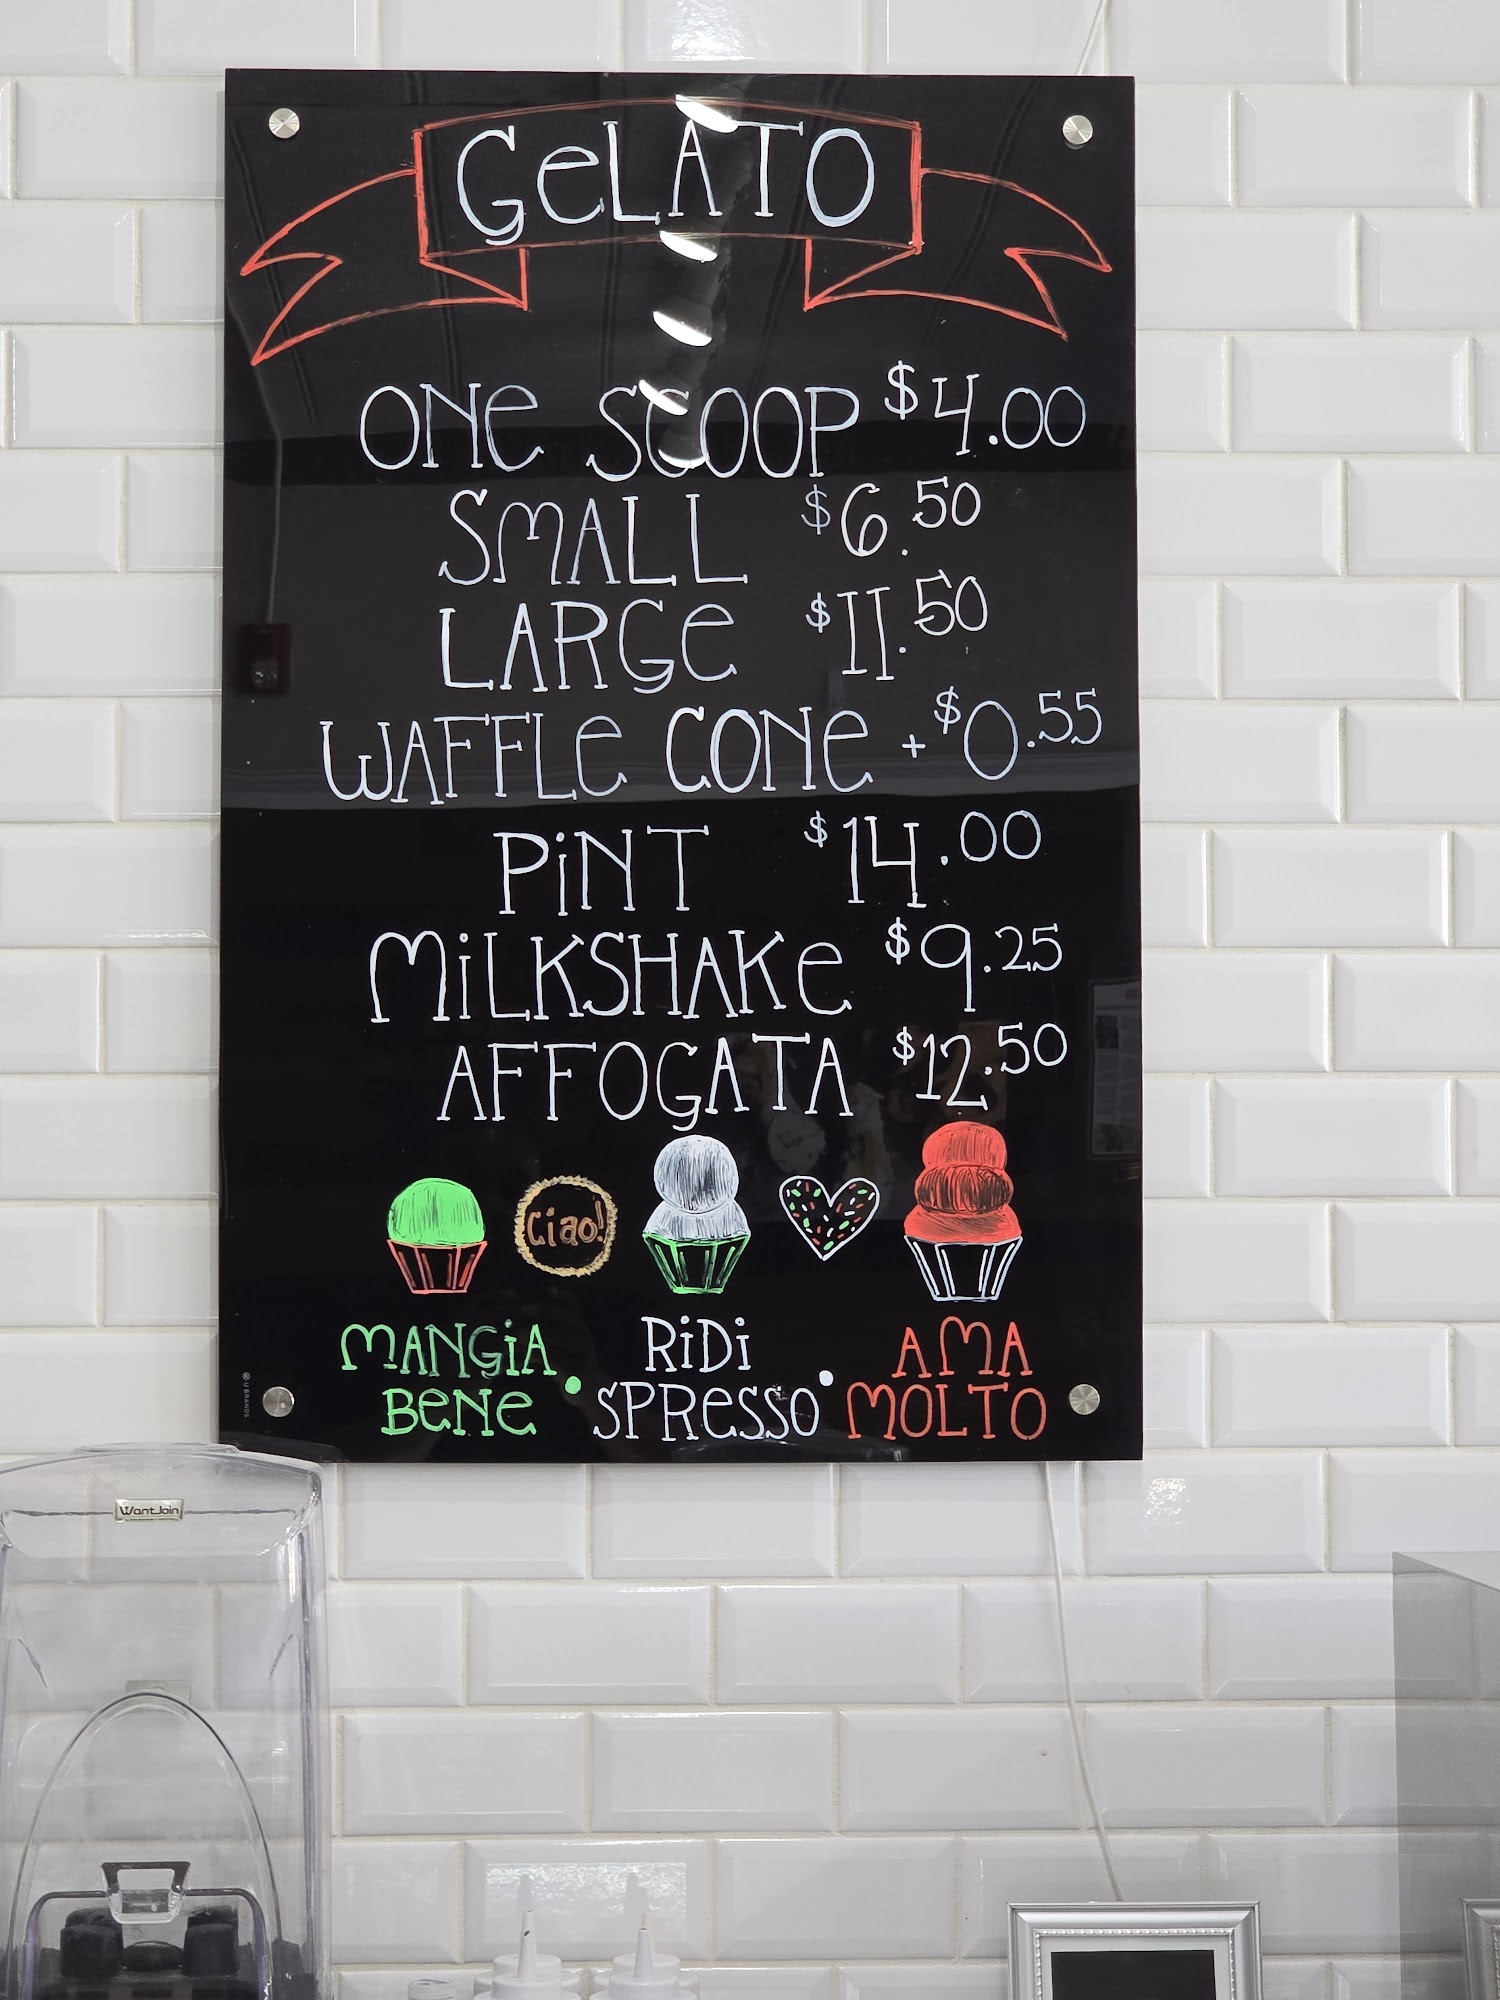 GeLATO
ONe SCOOP $4.00
SMALL $6.50
LARGe $11.50
WAFFLe CONe + $0.55
PiNT $14.00
MiLKSHAKe $9.25
AFFOGATA $12.50
Ciao!
MANGiA BeNe • RiDi SPReSSO • AMA MOLTO
U BRANDS
WantJoin